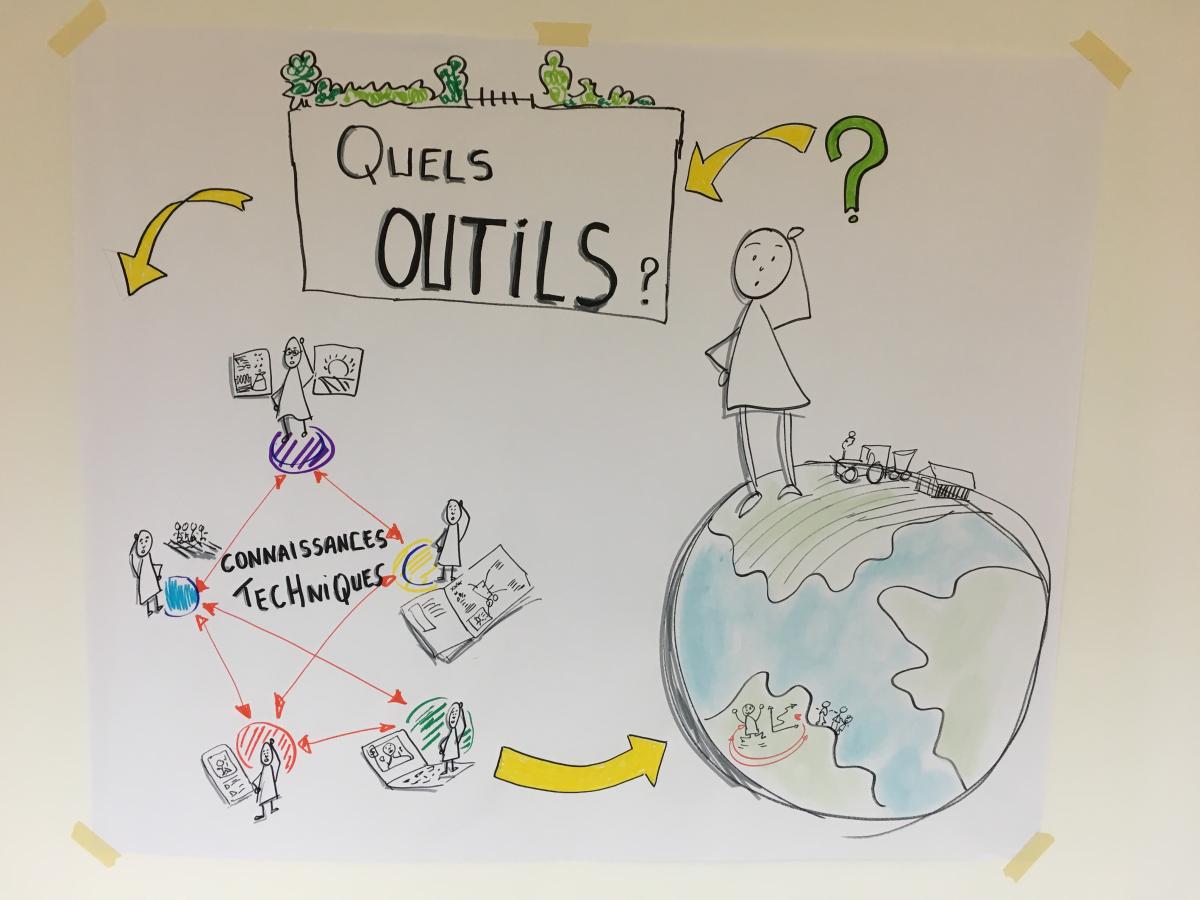 QUELS
OUTiLS ?
?
CONNAISSANCES
TECHNiQUES